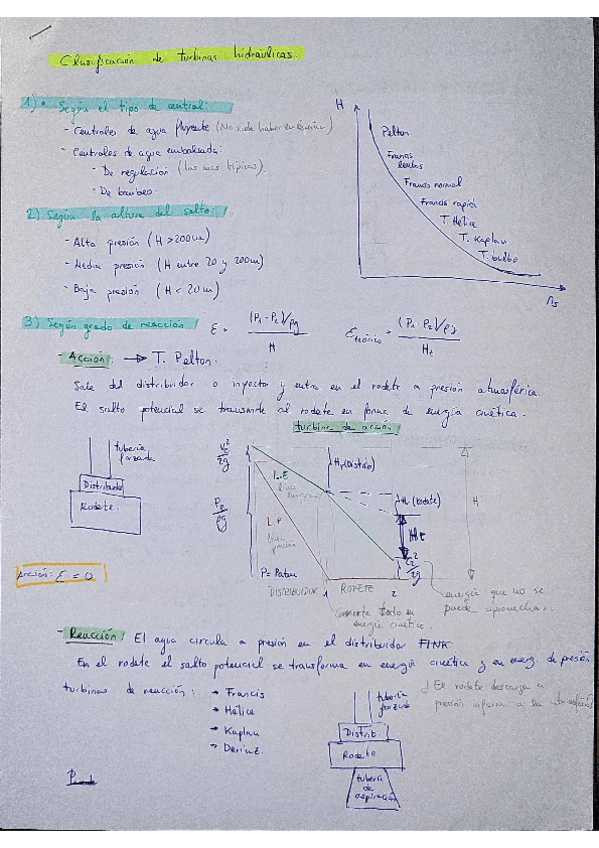 Clasificación de turbinas hidráulicas.
1) • Según el tipo de central:
- Centrales de agua fluyente (No suele haber en España)
- Centrales de agua embalsada:
- De regulación (las mas típicas)
- De bombeo.
2) Según la altura del salto:
- Alta presión (H > 200m)
- Media presión (H entre 20 y 200m)
- Baja presión (H < 20m)
H
Pelton
Francis lentas
Francis normal
Francis rapida
T. Hélice
T. Kaplan
T. bulbo
ns
3) Según grado de reacción ε = (P1 - P2)/ρg / H εteórico = (P1 - P2)/ρg / Ht
- Acción: → T. Pelton.
Sale del distribuidor o inyector y entra en el rodete a presión atmosférica.
El salto potencial se transmite al rodete en forma de energía cinética.
turbina de acción
tubería forzada
Distribuidor
Rodete.
L.E
L.P
H1 (Distrib)
H (rodete)
H
P = Patm
DISTRIBUIDOR 1 RODETE 2
Convierte todo en energía cinética.
energía que no se puede aprovechar.
Acción: ε = 0
- Reacción: El agua circula a presión en el distribuidor FINK
En el rodete el salto potencial se transforma en energía cinética y en energ. de presión
turbinas de reacción:
→ Francis
→ Hélice
→ Kaplan
→ Deriaz.
El rodete descarga a presión inferior a la atmosférica
tubería forzada
Distrib.
Rodete
tubería de aspiración